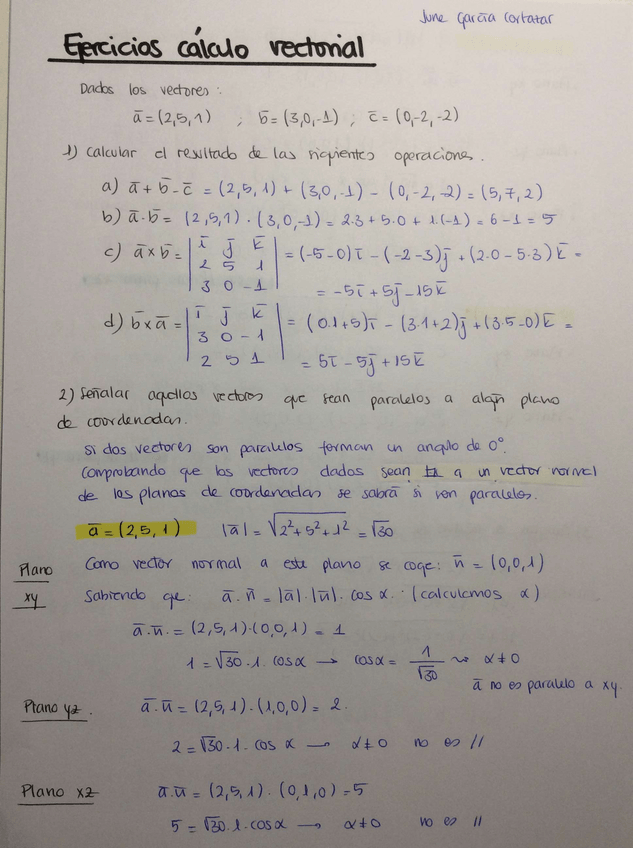 June García Cortazar
Ejercicios cálculo vectorial
Dados los vectores:
a̅ = (2,5,1) ; b̅ = (3,0,-1) ; c̅ = (0,-2,-2)
1) Calcular el resultado de las siguientes operaciones.
a) a̅ + b̅ - c̅ = (2,5,1) + (3,0,-1) - (0,-2,-2) = (5,7,2)
b) a̅·b̅ = (2,5,1)·(3,0,-1) = 2·3 + 5·0 + 1·(-1) = 6 - 1 = 5
c) a̅ x b̅ = | i̅ j̅ k̅ | = (-5-0)i̅ - (-2-3)j̅ + (2·0 - 5·3)k̅ =
2 5 1
3 0 -1 = -5i̅ + 5j̅ - 15k̅
d) b̅ x a̅ = | i̅ j̅ k̅ | = (0·1+5)i̅ - (3·1+2)j̅ + (3·5-0)k̅ =
3 0 -1
2 5 1 = 5i̅ - 5j̅ + 15k̅
2) Señalar aquellos vectores que sean paralelos a algún plano
de coordenadas.
Si dos vectores son paralelos forman un angulo de 0º.
Comprobando que los vectores dados sean a un vector normal
de los planos de coordenadas se sabrá si son paralelos.
a̅ = (2,5,1) |a̅| = √2²+5²+1² = √30
Plano xy
Como vector normal a este plano se coge: n̅ = (0,0,1)
Sabiendo que: a̅·n̅ = |a̅|·|n̅|·cos α. (calculamos α)
a̅·n̅ = (2,5,1)·(0,0,1) = 1
1 = √30·1·cosα → cosα = 1/√30 ⇝ α≠0
a̅ no es paralelo a xy.
Plano yz. a̅·n̅ = (2,5,1)·(1,0,0) = 2.
2 = √30·1·cos α → α≠0 no es //
Plano xz a̅·n̅ = (2,5,1)·(0,1,0) = 5
5 = √30·1·cosα → α≠0 no es //